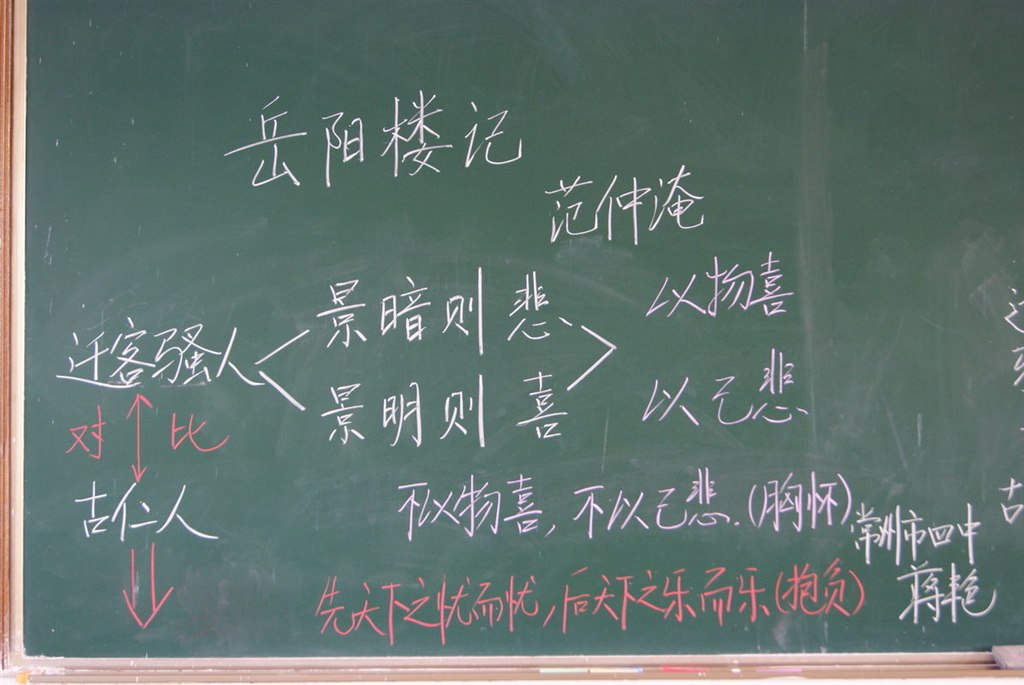 岳阳楼记
范仲淹
景暗则悲
以物喜
迁客骚人
景明则喜
以己悲
对比
古仁人
不以物喜，不以己悲．(胸怀)
常州市四中
蒋艳
先天下之忧而忧，后天下之乐而乐(抱负)
古